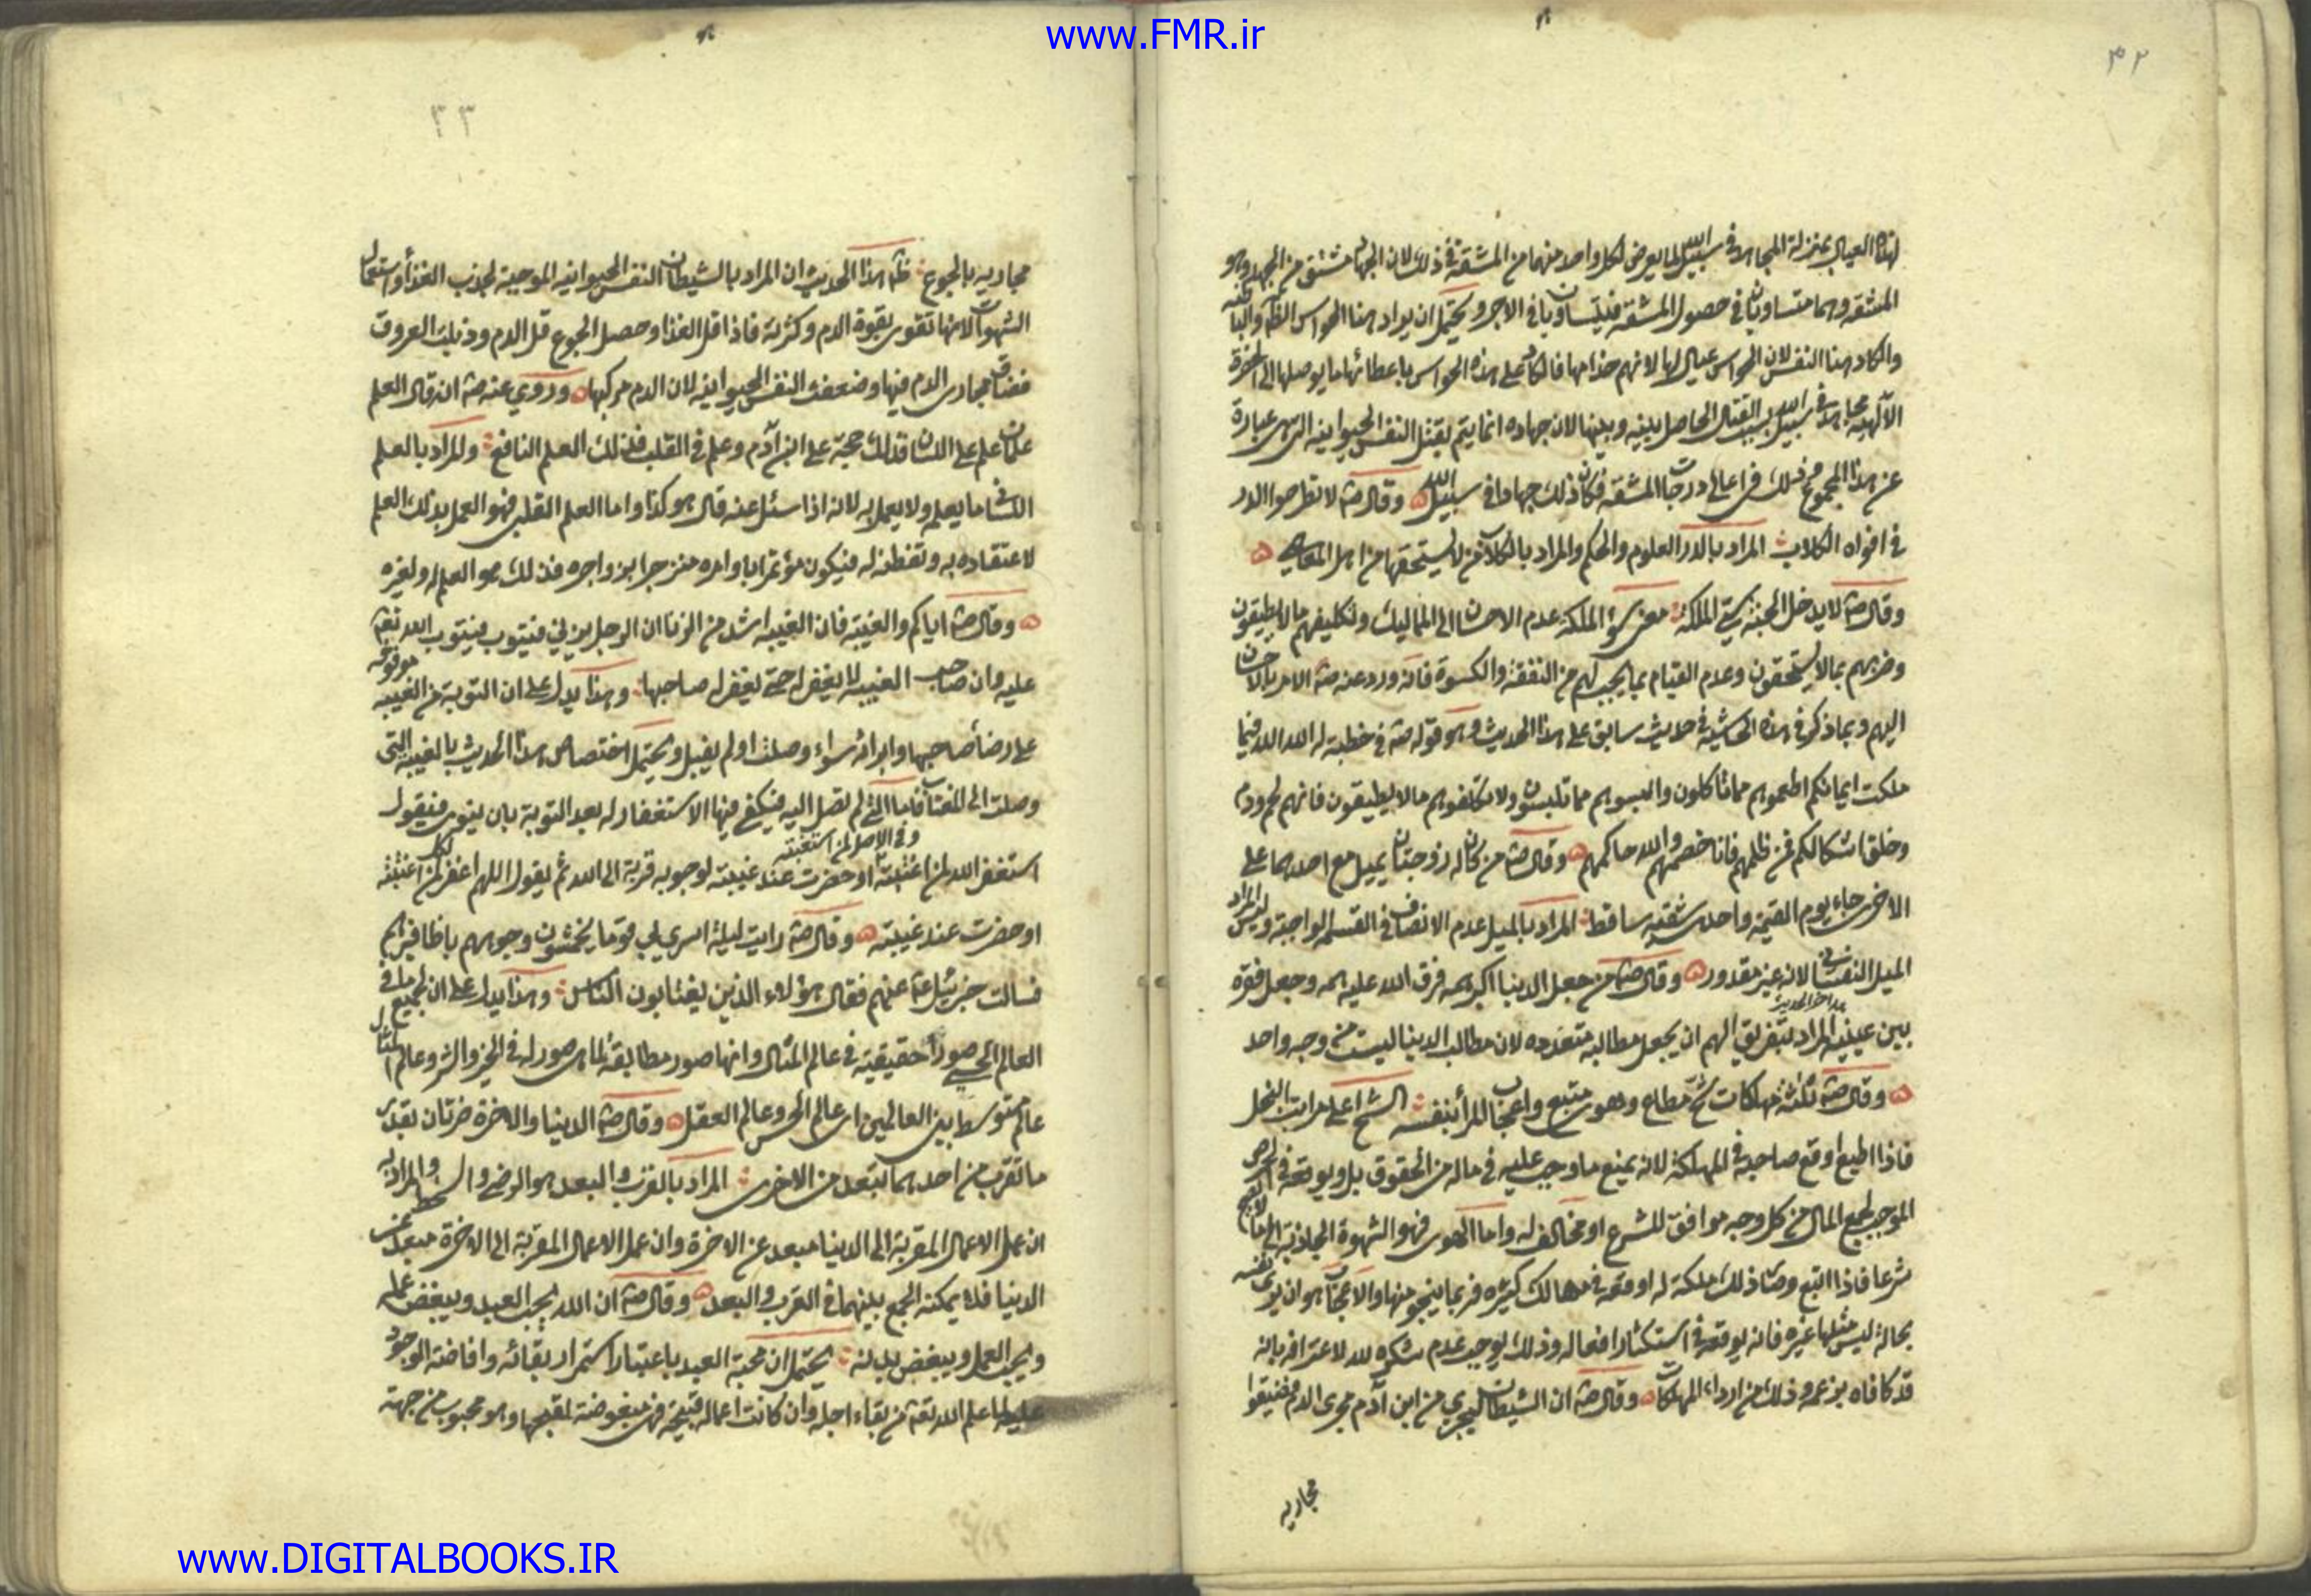 www.FMR.ir
٣٢
لهذا العيال بمنزلة المجاهد في سبيل الله لما يعرض لكل واحد منهما من المشقة في ذلك لان الجهاد مشتق من الجهد وهو
المشقة وهما متساويان في حصول المشقة فيتساويا في الاجر ويحتمل ان يراد هنا الحواس الظاهرة والباطنه
والكاد هنا النفس لان الحواس عيال لها لانهم خدامها فالكاد على هذه الحواس باعطائها ما يوصلها الى الحضرة
الآلهية مجاهد في سبيل الله بسبب القتال الحاصل بينه وبينها لان جهاده انما يتم بقتل النفس الحيوانية التي هي عبارة
عن هذا المجموع وذلك في اعلى درجات المشقة فكان ذلك جهادا في سبيل الله وقال صه لا تطرحوا الدر
في افواه الكلاب المراد بالدر العلوم والحكم والمراد بالكلاب من لا يستحقها من اهل المعاصي
وقال صه لا يدخل الجنة سيئ الملكة معنى سوء الملكة عدم الاحسان الى المماليك وتكليفهم ما لا يطيقون
وضربهم بما لا يستحقون وعدم القيام بما يجب لهم من النفقة والكسوة فانه ورد عنه صه الامر بالاحسان
اليهم وبما ذكر في هذه الحاشية في حديث سابق على هذا الحديث وهو قوله صه في خطبته له الله الله فيما
ملكت ايمانكم اطعموهم مما تاكلون والبسوهم مما تلبسون ولا تكلفوهم ما لا يطيقون فانهم لحم ودم
وخلق اشكالكم فمن ظلمهم فانا خصمهم والله حاكمهم وقال صه من كان له زوجتان يميل مع احداهما على
الاخرى جاء يوم القيمة واحد شقيه ساقط المراد بالميل عدم الانصاف في القسمة الواجبة وليس المراد
الميل النفساني لانه غير مقدور وقال صه من جعل الدنيا اكبر همه فرق الله عليه همه وجعل فقره
هذا اخر الحديث
بين عينيه المراد بتفريق الهم ان يجعل مطالبه متعدده لان مطالب الدنيا ليست من وجه واحد
وقال صه ثلثة مهلكات شح مطاع وهوى متبع واعجاب المرأ بنفسه الشح اعلى مراتب البخل
فاذا اطيع اوقع صاحبه في المهلكة لانه يمنع ما وجب عليه في ماله من الحقوق بل ويوقعه في الحرص
الموجب لجمع المال من كل وجه موافق للشرع او مخالف له واما الهوى فهو الشهوة الجاذبة الى ما لا يبيح
شرعا فاذا اتبع وصار ذلك ملكة له اوقعه في مهالك كثيره فربما ينجو منها والاعجاب هو ان يرى نفسه
بحالة ليس مثلها غيره فانه يوقعه في استكثار افعاله وذلك يوجب عدم شكره لله لاعترافه بانه
قد كافاه بزعمه وذلك من ارداء المهلكات وقال صه ان الشيطان ليجري من ابن آدم مجرى الدم فضيقوا
مجاريه
٣٣
مجاريه بالجوع ظهر هذا الحديث ان المراد بالشيطان النفس الحيوانيه الموجبة لجذب الغذاء واستعمال
الشهوات لانها تقوى بقوة الدم وكثرته فاذا قل الغذا وحصل الجوع قل الدم وذبلت العروق
فضاق مجارى الدم فيها وضعفت النفس الحيوانيه لان الدم مركبها وروي عنه صه انه قال العلم
علمان علم على اللسان فذلك حجة على ابن آدم وعلم في القلب فذلك العلم النافع والمراد بالعلم
اللساني ما يعلم ولا يعمل به لانه اذا سئل عنه قال هو كذا واما العلم القلبي فهو العمل بذلك العلم
لاعتقاده به وتفطنه له فيكون مؤتمرا باوامره منزجرا بزواجره فذلك هو العلم له ولغيره
وقال صه اياكم والغيبة فان الغيبة اشد من الزنا ان الرجل يزني فيتوب فيتوب الله تعه
عليه وان صاحب الغيبة لا يغفر له حتى يغفر له صاحبها وهذا يدل على ان التوبة من الغيبة موقوفه
على رضاء صاحبها وابرائه سواء وصلت او لم يقبل ويحتمل اختصاص هذا الحديث بالغيبة التي
وصلت الى المغتاب فاما التي لم تصل اليه فيكفي فيها الاستغفار له بعد التوبة بان ينوى فيقول
وفي الاصل لمن استغبته
استغفر الله لمن اغتبته او حضرت عند غيبته لوجوبه قربة الى الله ثم يقول اللهم اغفر لكل من اغتبته
او حضرت عند غيبته وقال صه رايت ليلة اسري بي قوما يخمشون وجوههم باظافيرهم
فسالت جبرئيل عه عنهم فقال هؤلاء الذين يغتابون الناس وهذا يدل على ان لجميع ما في
العالم الحسي صورا حقيقية في عالم المثال وانها صور مطابقة لما هي صور له في الخير والشر وعالم المثال
عالم متوسط بين العالمين اى عالم الحس وعالم العقل وقال صه الدنيا والاخرة ضرتان بقدر
ما تقرب من احدهما تبعد من الاخرى المراد بالقرب والبعد هو الرضى والسخط والمراد به
ان عمل الاعمال المقربة الى الدنيا مبعد عن الاخرة وان عمل الاعمال المقربة الى الاخرة مبعد عن
الدنيا فلا يمكنه الجمع بينهما في القرب والبعد وقال صه ان الله يحب العبد ويبغض عمله
ويحب العمل ويبغض بدنه يحتمل ان محبة العبد باعتبار استمرار بقائه وافاضته الوجود
عليه لما علم الله تعه من بقاء اجله وان كانت اعماله قبيحة فهى مبغوضة لقبحها وهو محبوب من جهة
www.DIGITALBOOKS.IR